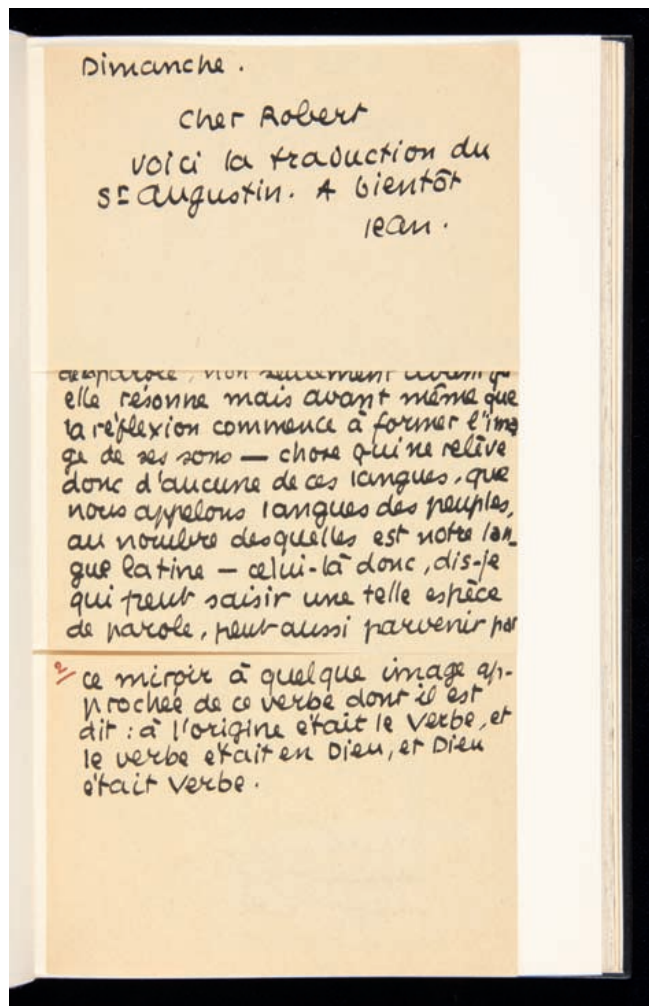 Dimanche.
Cher Robert
voici la traduction du
St Augustin. A bientôt
Jean.
parole, non seulement avant qu'
elle résonne mais avant même que
la réflexion commence à former l'ima
ge de ses sons — chose qui ne relève
donc d'aucune de ces langues, que
nous appelons langues des peuples,
au nombre desquelles est notre lan_
gue latine — celui-là donc, dis-je
qui peut saisir une telle espèce
de parole, peut aussi parvenir par
2 ce miroir à quelque image ap-
prochée de ce verbe dont il est
dit : à l'origine était le Verbe, et
le verbe était en Dieu, et Dieu
était Verbe.